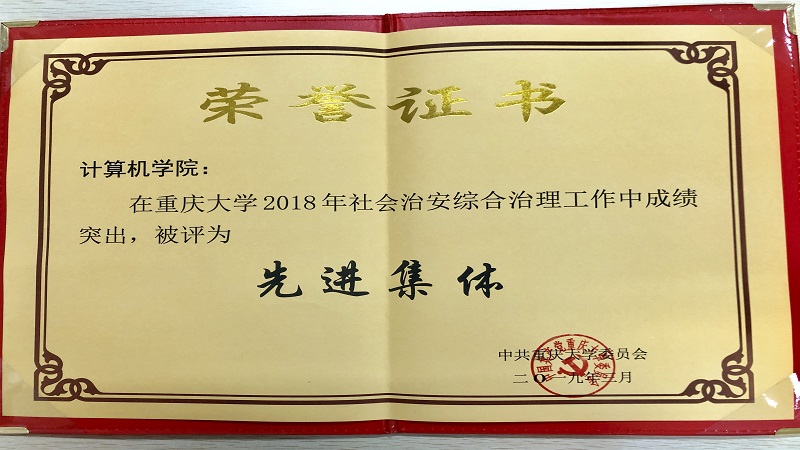 荣誉证书
计算机学院：
在重庆大学2018年社会治安综合治理工作中成绩
突出，被评为
先进集体
中共重庆大学委员会
二〇一九年三月